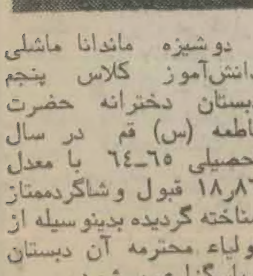 دوشیزه ماندانا ماشلی
دانش‌آموز کلاس پنجم
دبستان دخترانه حضرت
فاطمه (س) قم در سال
تحصیلی ٦٥-٦٤ با معدل
١٨٫٨٦ قبول و شاگرد ممتاز
شناخته گردیده بدینوسیله از
اولیاء محترمه آن دبستان